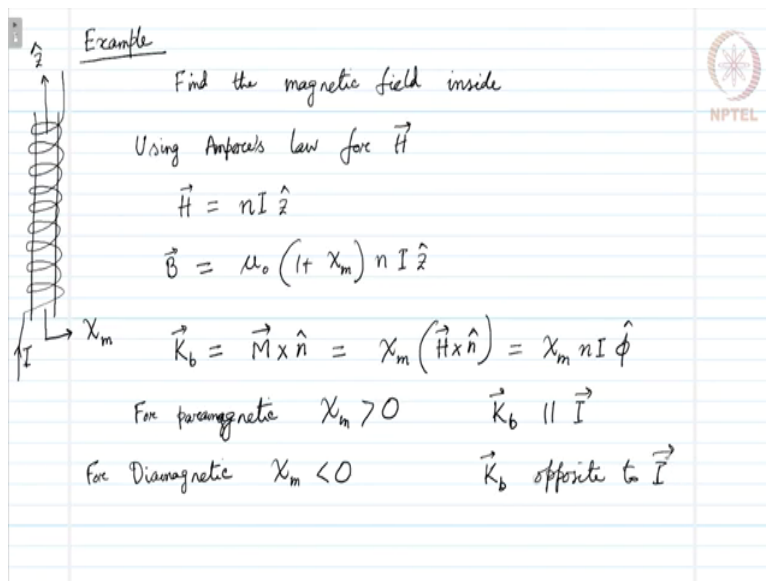 Example
ẑ
Find the magnetic field inside
NPTEL
Using Ampere's law for H⃗
H⃗ = nI ẑ
B⃗ = μ₀ (1+ χₘ) n I ẑ
χₘ
I
K⃗_b = M⃗ × n̂ = χₘ (H⃗ × n̂) = χₘ nI φ̂
For paramagnetic χₘ > 0 K⃗_b || I⃗
For Diamagnetic χₘ < 0 K⃗_b opposite to I⃗